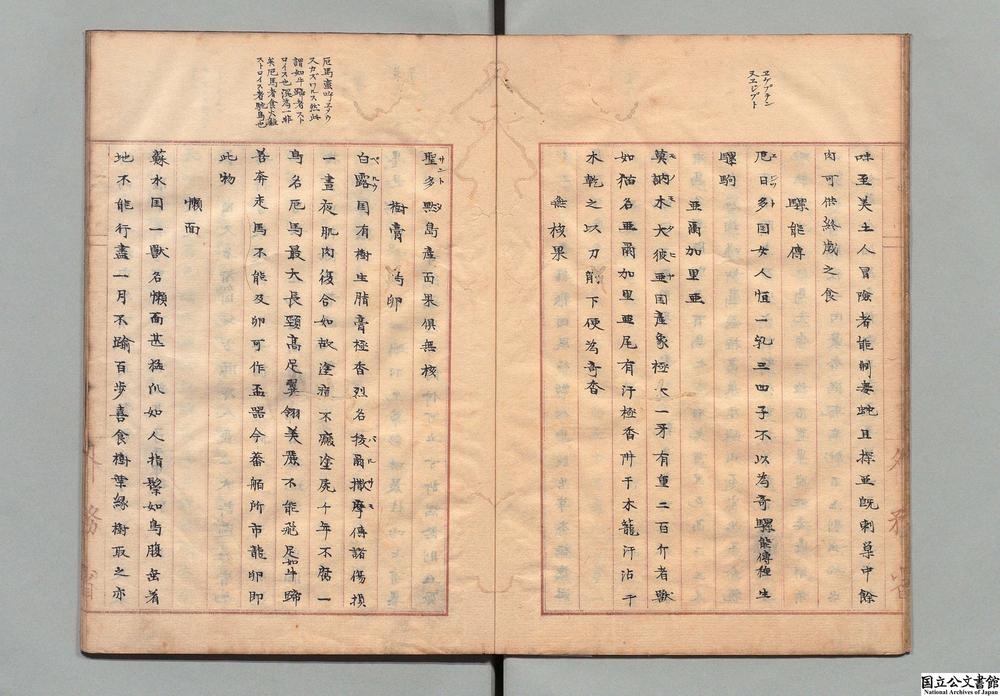 ヱゲプタン
又エジプト
味至美土人冒險者能捕毒蛇且探並既刺草中餘
肉可供終歳之食
騾能傳
厄日多国女人恒一乳三四子不以為奇騾能傳種生
騾駒
亜爾加里亜
莫訥木大彼亜国産象極大一牙有重二百斤者獣
如猫名亜爾加里亜尾有汗極香阱于木籠汗沾于
木乾之以刀削下便為奇香
無核果
厄馬蛮呌ヱメウ
又カズワルス然此
謂如牛蹄者スト
ロイス也混為一非
矣厄馬者食火雞
ストロイス者駝鳥也
聖多黙島産面果俱無核
樹膏 鳥卵
白露国有樹生脂膏極香烈名拔爾撒摩傅諸傷損
一晝夜肌肉復合如故塗痘不瘢塗屍千年不腐一
鳥名厄馬最大長頸高足翼翎美麗不能飛足如牛蹄
善奔走馬不能及卵可作盃器今蕃舶所市龍卵即
此物
懶面
蘇水国一獣名懶面甚猛爪如人指鬃如馬腹垂着
地不能行盡一月不踰百歩喜食樹葉縁樹取之亦
外務省
国立公文書館
National Archives of Japan